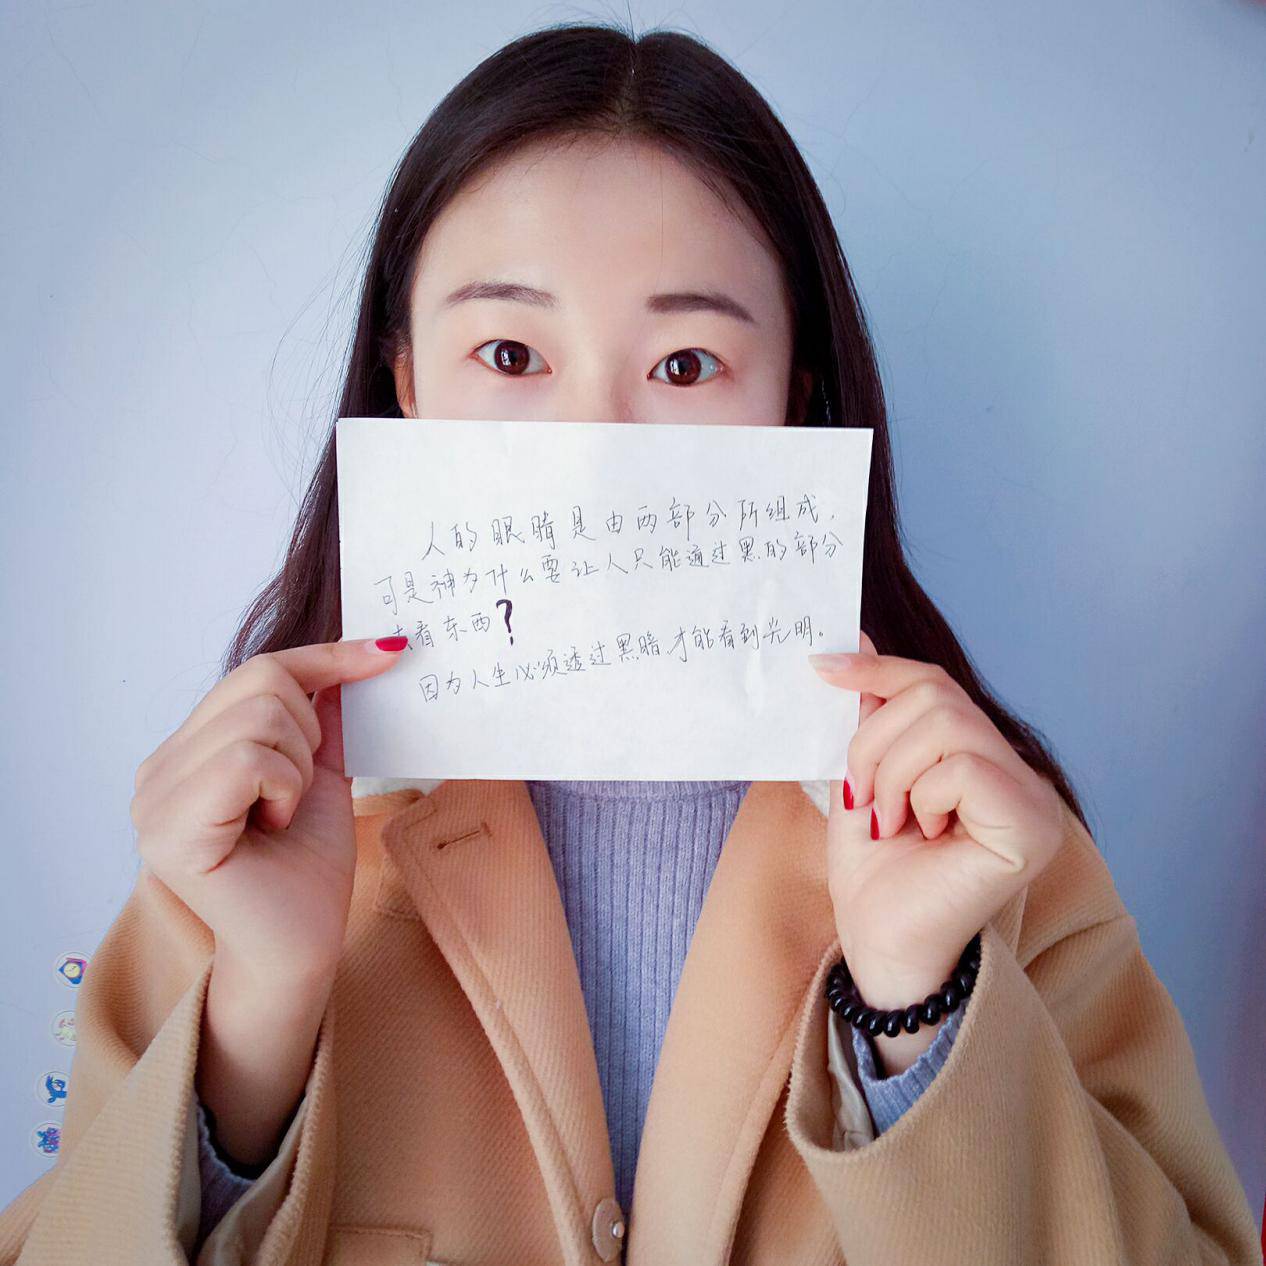 人的眼睛是由两部分所组成,
可是神为什么要让人只能通过黑的部分
去看东西?
因为人生必须透过黑暗才能看到光明。